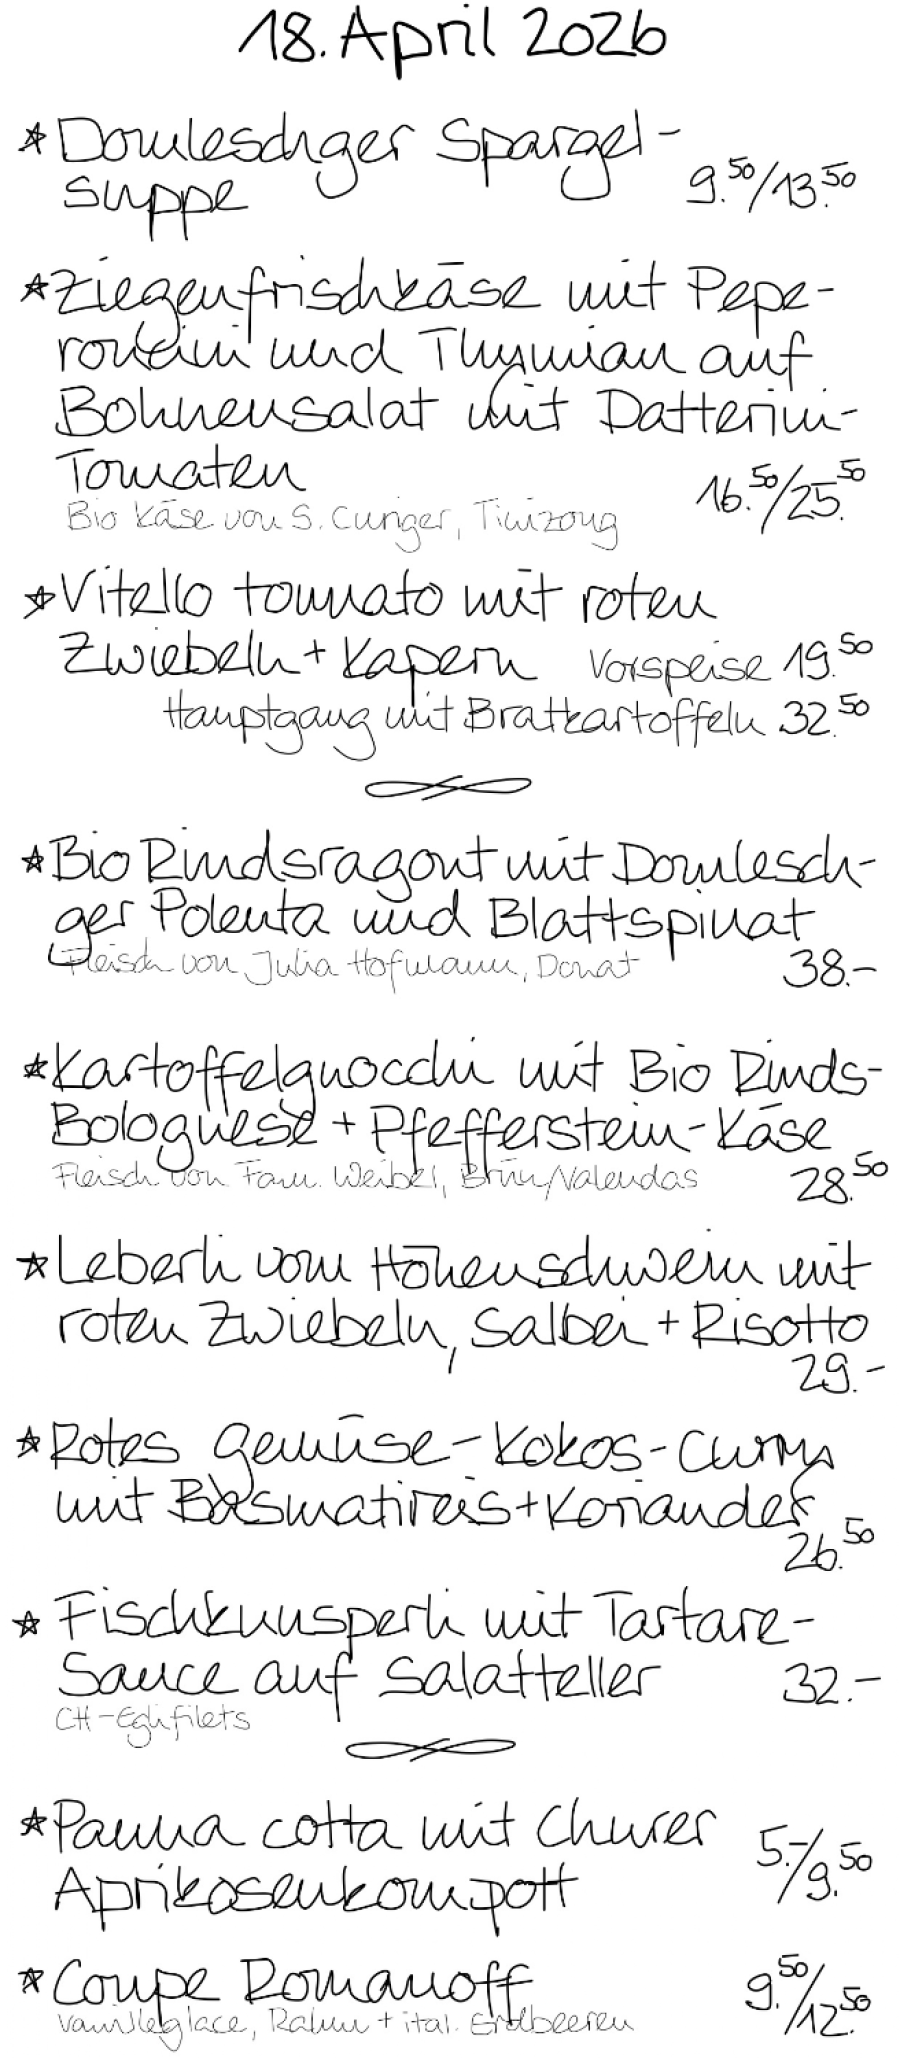 18. April 2026
* Domleschger Spargel-
suppe 9.50/13.50
* Ziegenfrischkäse mit Pepe-
roncini und Thymian auf
Bohnensalat mit Datterini-
Tomaten 16.50/25.50
Bio Käse von S. Cunger, Tinizong
* Vitello tonnato mit roten
Zwiebeln + Kapern Vorspeise 19.50
Hauptgang mit Bratkartoffeln 32.50
* Bio Rindsragout mit Domlesch-
ger Polenta und Blattspinat
Fleisch von Julia Hofmann, Donat 38.-
* Kartoffelgnocchi mit Bio Rinds-
Bolognese + Pfefferstein-Käse
Fleisch von Fam. Weibel, Brün/Valendas 28.50
* Leberli vom Höhenschwein mit
roten Zwiebeln, Salbei + Risotto
29.-
* Rotes Gemüse-Kokos-Curry
mit Basmatireis + Koriander
26.50
* Fischknusperli mit Tartare-
Sauce auf Salatteller 32.-
CH-Eglifilets
* Panna cotta mit Churer
Aprikosenkompott 5.-/9.50
* Coupe Romanoff 9.50/12.50
Vanilleglace, Rahm + ital. Erdbeeren